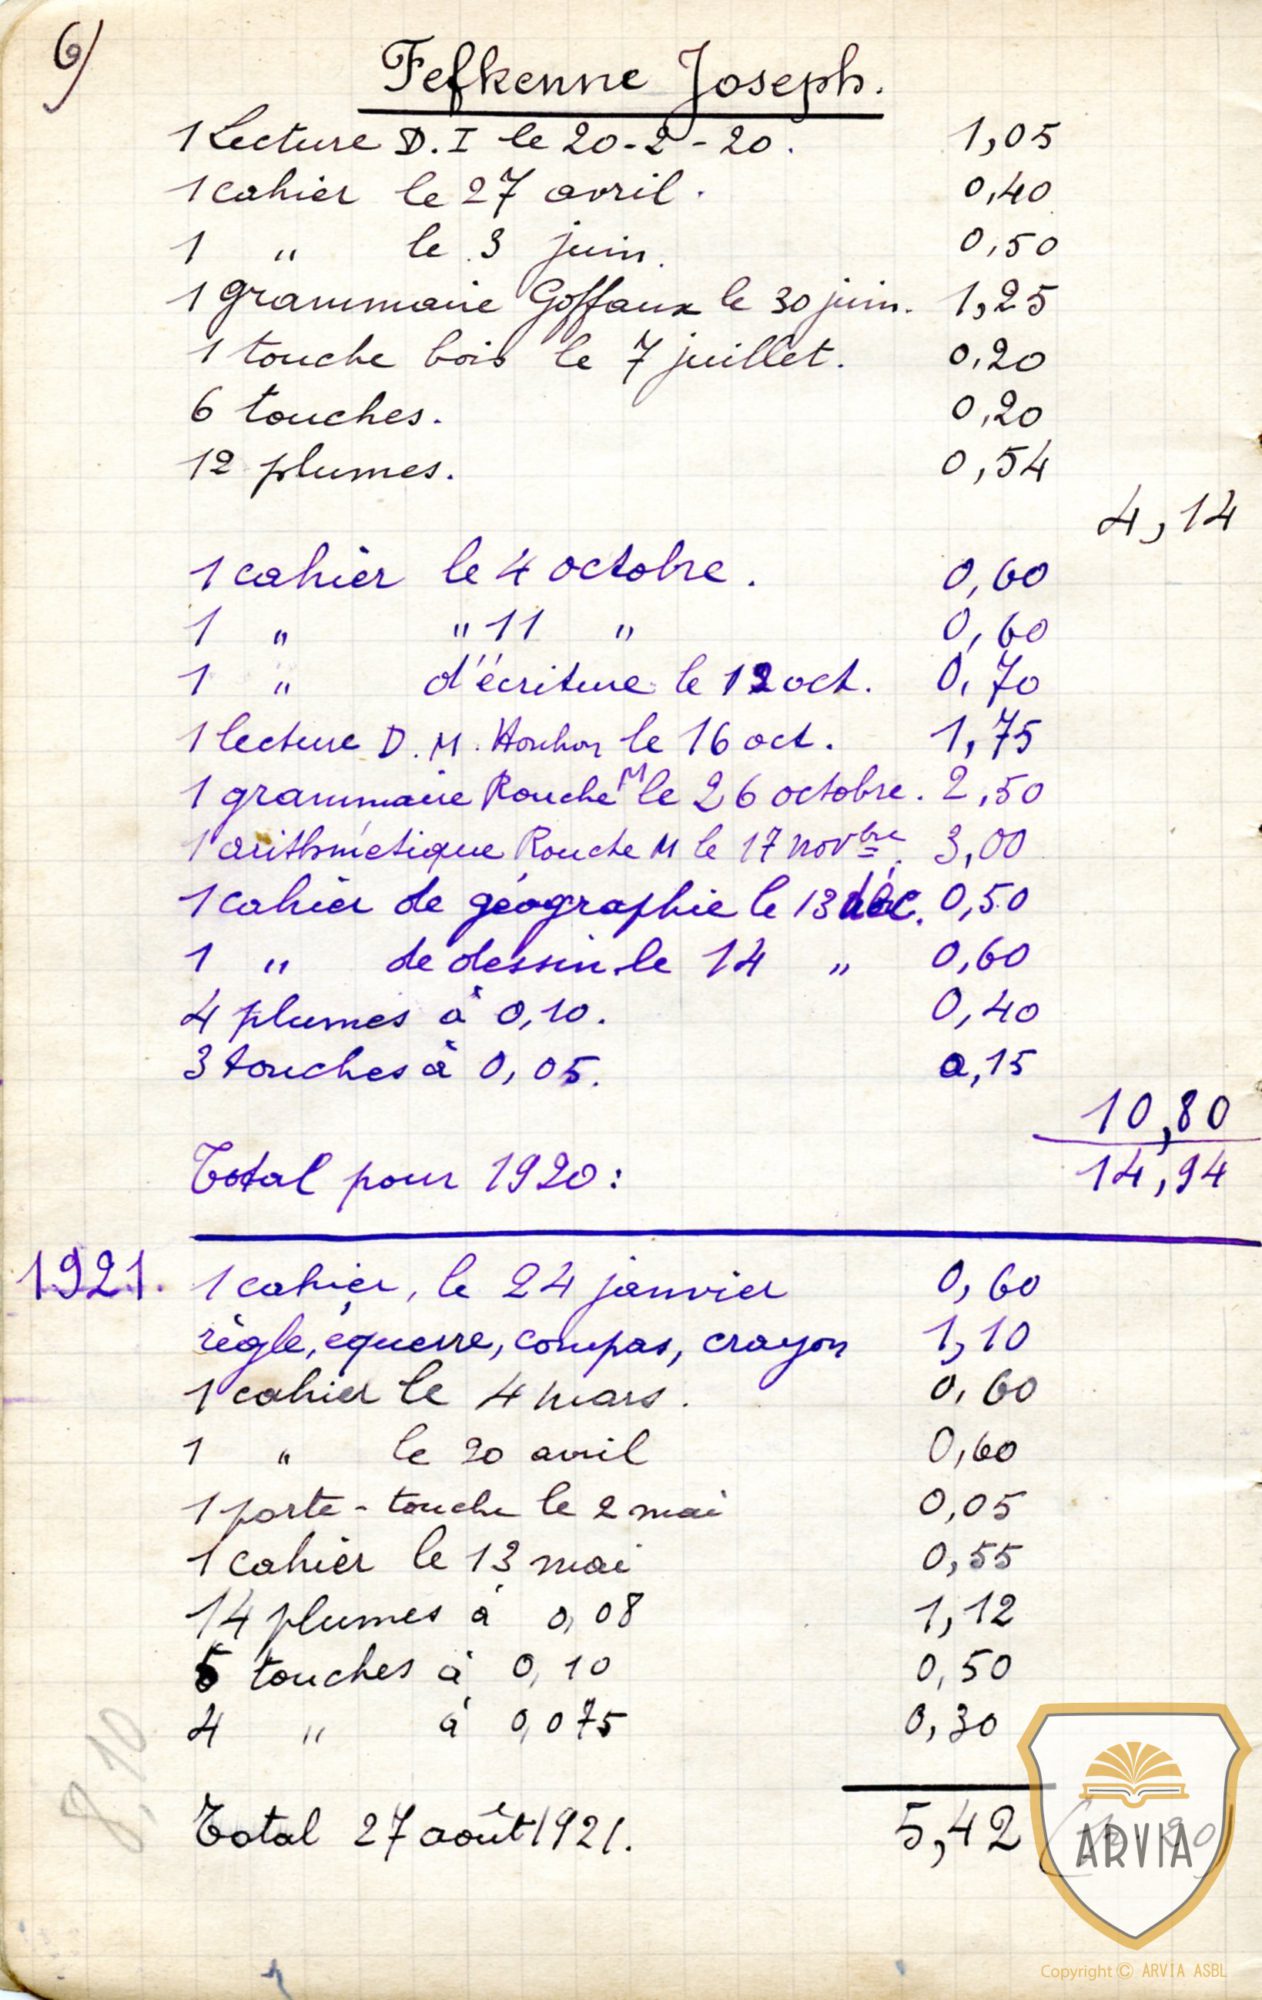 6)
Fefkenne Joseph.
1 Lecture D.I le 20-2-20. 1,05
1 cahier le 27 avril. 0,40
1 " le 3 juin. 0,50
1 grammaire Goffaux le 30 juin. 1,25
1 touche bois le 7 juillet. 0,20
6 touches. 0,20
12 plumes. 0,54
4,14
1 cahier le 4 octobre. 0,60
1 " " 11 " 0,60
1 " d'écriture le 12 oct. 0,70
1 lecture D. M. le 16 oct. 1,75
1 grammaire Rouche M le 26 octobre. 2,50
1 arithmétique Rouche M le 17 novbre. 3,00
1 cahier de géographie le 13 déc. 0,50
1 " de dessin le 14 " 0,60
4 plumes à 0,10. 0,40
3 touches à 0,05. 0,15
10,80
Total pour 1920: 14,94
1921. 1 cahier, le 24 janvier 0,60
règle, équerre, compas, crayon 1,10
1 cahier le 4 mars. 0,60
1 " le 20 avril 0,60
1 porte-touche le 2 mai 0,05
1 cahier le 13 mai 0,55
14 plumes à 0,08 1,12
5 touches à 0,10 0,50
4 " à 0,075 0,30
8,10
Total 27 août 1921. 5,42
ARVIA
Copyright © ARVIA ASBL